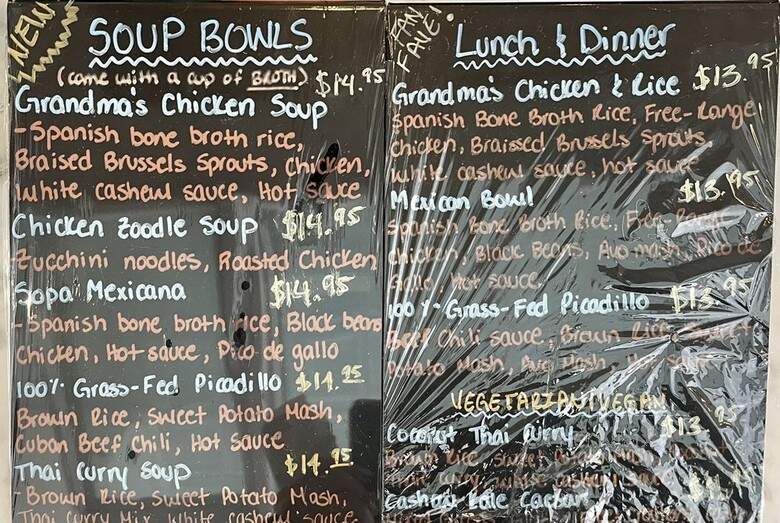 NEW
SOUP BOWLS
(come with a cup of BROTH) $14.95
Grandma's Chicken Soup
-Spanish bone broth rice,
Braised Brussels Sprouts, Chicken,
White cashew sauce, Hot sauce
Chicken Zoodle Soup $14.95
Zucchini noodles, Roasted Chicken
Sopa Mexicana $14.95
-Spanish bone broth rice, Black beans
Chicken, Hot sauce, Pico de gallo
100% Grass-Fed Picadillo $14.95
Brown Rice, Sweet Potato Mash,
Cuban Beef Chili, Hot Sauce
Thai Curry Soup $14.95
-Brown Rice, Sweet Potato Mash,
Thai Curry Mix, White cashew sauce,
FAN FAVE!
Lunch & Dinner
Grandma's Chicken & Rice $13.95
Spanish Bone Broth Rice, Free-Range
Chicken, Braissed Brussels Sprouts
White cashew sauce, hot sauce
Mexican Bowl $13.95
Spanish Bone Broth Rice, Free-Range
Chicken, Black Beans, Avo mash, Pico de
Gallo, Hot sauce
100% Grass-Fed Picadillo $13.95
Beef Chili sauce, Brown Rice, Sweet
Potato Mash, Avo Mash,
VEGETARIAN/VEGAN
Coconut Thai Curry $13.95
Brown Rice, Sweet Potato Mash,
Thai Curry, White cashew
Cashew Kale Caesar